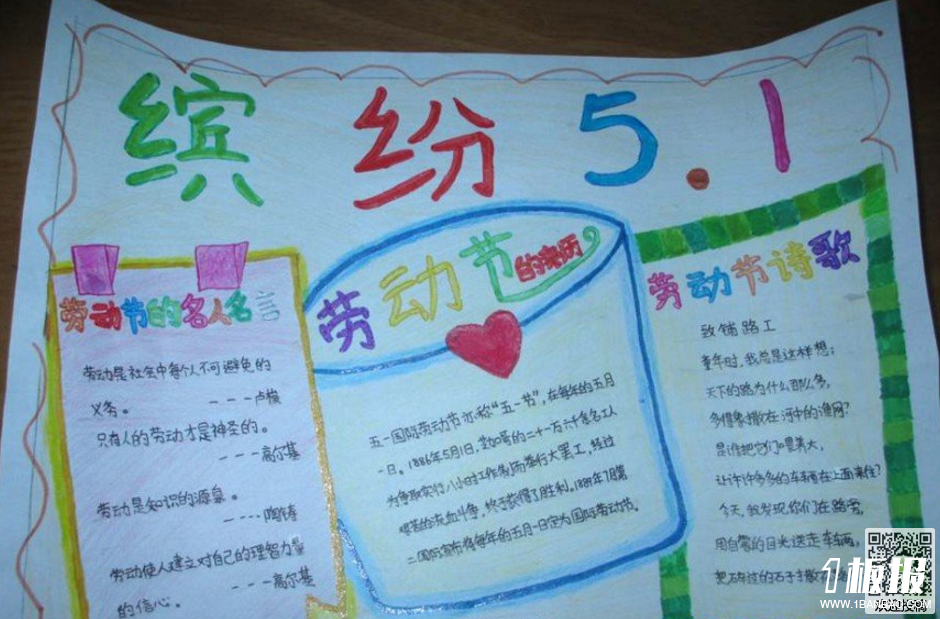 缤纷5.1
劳动节的名人名言
劳动是社会中每个人不可避免的
义务。 ---卢梭
只有人的劳动才是神圣的。
---高尔基
劳动是知识的源泉。
----陶铸
劳动使人建立对自己的理智力量
---高尔基
的信心。
劳动节的来历
五一国际劳动节亦称“五一节”,在每年的五月
一日。1886年5月1日,芝加哥的二十一万六千余名工人
为争取实行八小时工作制而举行大罢工,经过
艰苦的流血斗争,终于获得了胜利。1889年7月第
二国际宣布将每年的五月一日定为国际劳动节。
劳动节诗歌
致铺路工
童年时,我总是这样想:
天下的路为什么那么多,
多得象撒在河中的渔网?
是谁把它们喂养大,
让许许多多的车辆在上面来住?
今天,我发现你们在路旁,
用自豪的目光送走车辆,
把石碎过的石子手撒在
1板报
WWW.1BANBAO.COM
欢迎投稿